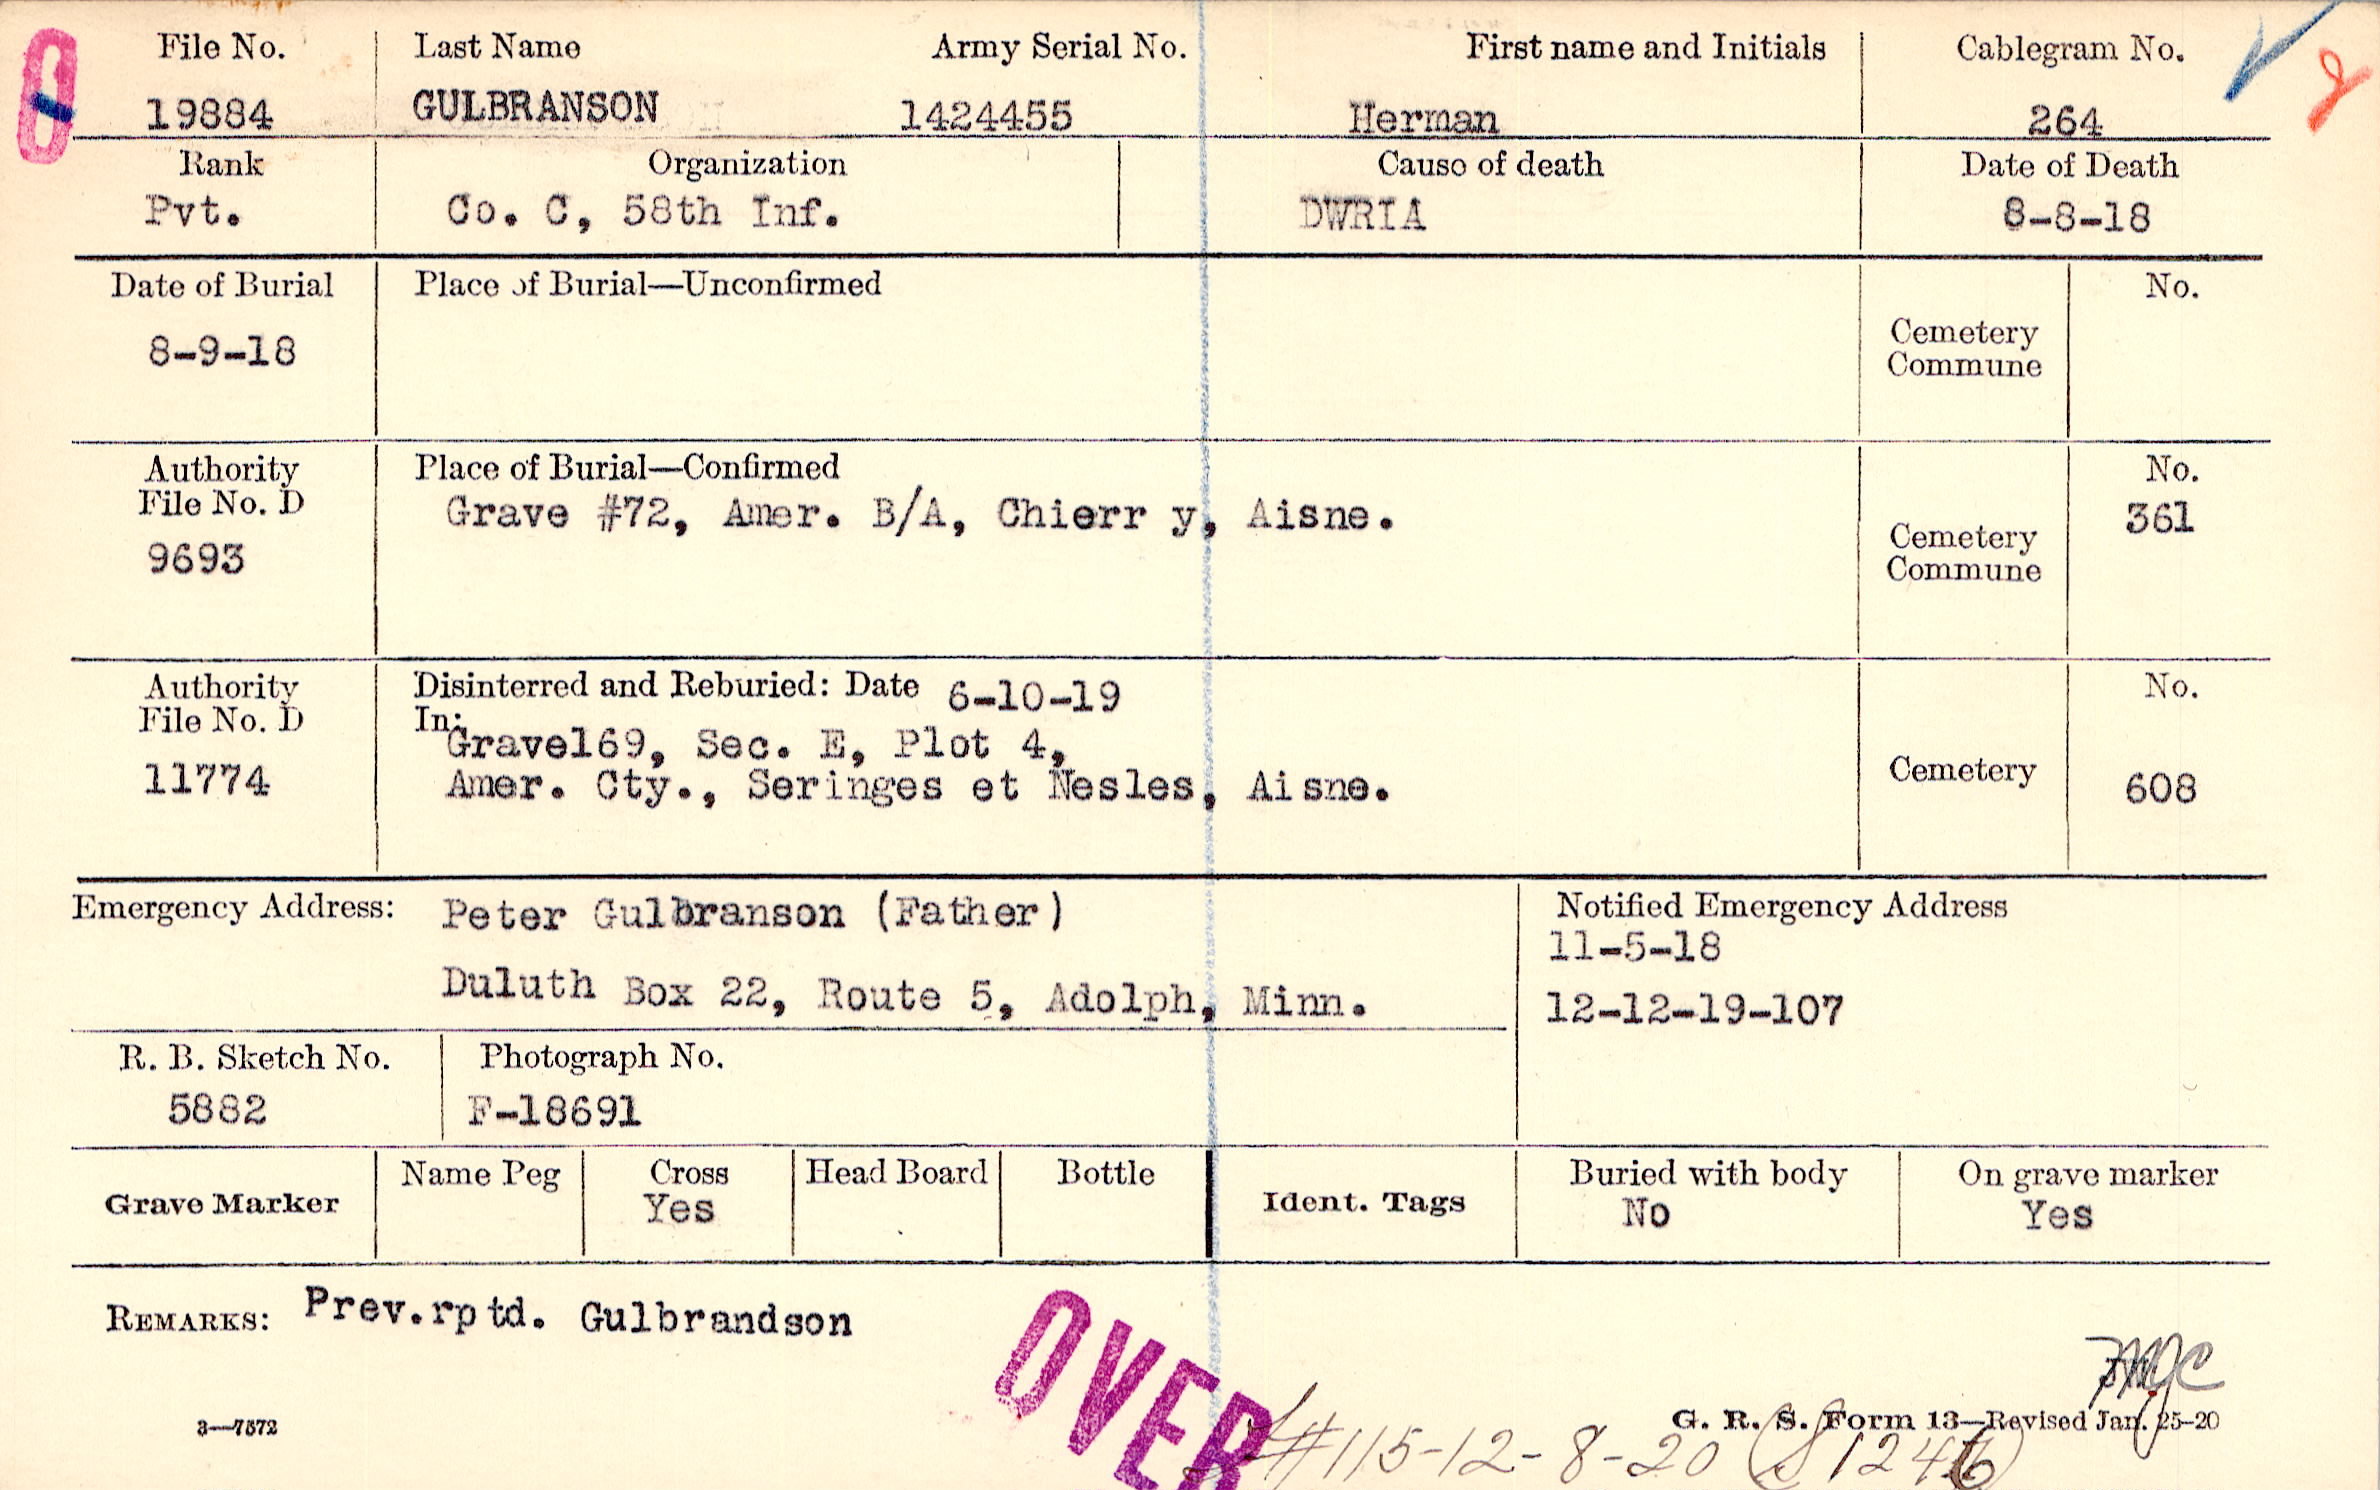 File No. Last Name Army Serial No. First name and Initials Cablegram No.
19884 GULBRANSON 1424455 Herman 264
Rank Organization Cause of death Date of Death
Pvt. Co. C, 58th Inf. DWRIA 8-8-18
Date of Burial Place of Burial—Unconfirmed No.
8-9-18 Cemetery
Commune
Authority Place of Burial—Confirmed No.
File No. D Grave #72, Amer. B/A, Chierr y, Aisne. 361
9693 Cemetery
Commune
Authority Disinterred and Reburied: Date 6-10-19 No.
File No. D In:
Grave169, Sec. E, Plot 4,
11774 Amer. Cty., Seringes et Nesles, Aisne. Cemetery 608
Emergency Address: Peter Gulbranson (Father) Notified Emergency Address
11-5-18
Duluth Box 22, Route 5, Adolph, Minn. 12-12-19-107
R. B. Sketch No. Photograph No.
5882 F-18691
Grave Marker Name Peg Cross Head Board Bottle Ident. Tags Buried with body On grave marker
Yes No Yes
REMARKS: Prev.rptd. Gulbrandson
OVER
3—7572 G. R. S. Form 13—Revised Jan. 25-20
#115-12-8-20 (S1246)